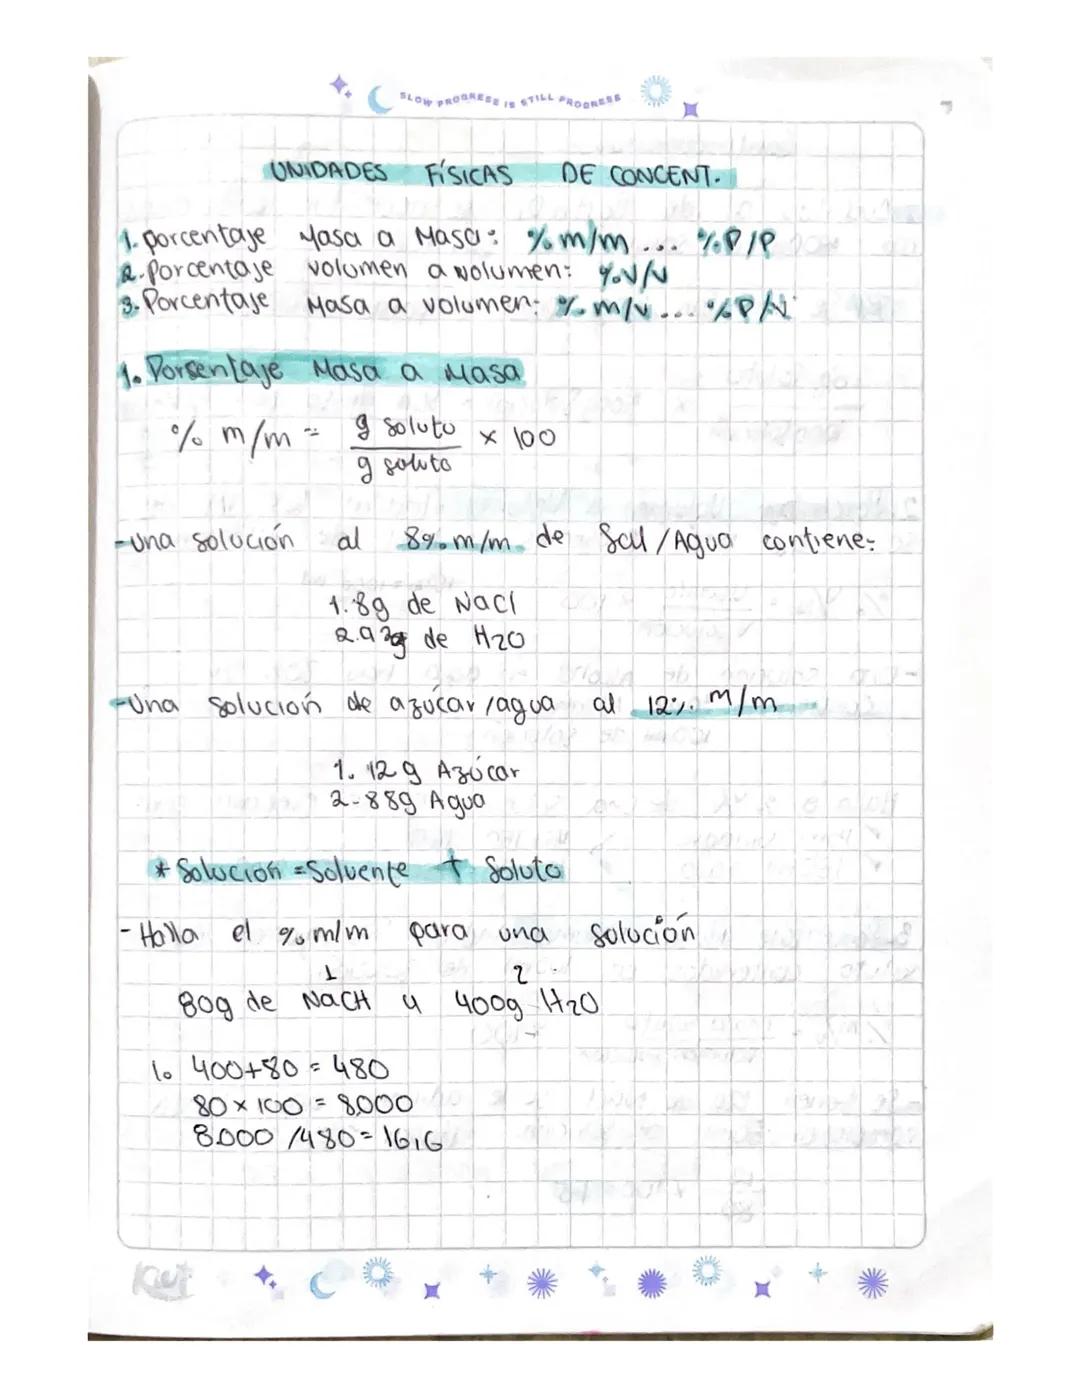 SLOW PROGRESS IS STILL PROGRESS
UNIDADES FÍSICAS DE CONCENT.
1. porcentaje Masa a Masa: % m/m ... %P/P
2. Porcentaje volumen a volumen: %V/V
3. Porcentaje Masa a volumen: % m/v ... %P/V
1. Porsentaje Masa a Masa
% m/m = g soluto / g soluto × 100
- Una solución al 8% m/m de Sal / Agua contiene:
1. 8g de NaCl
2. 92g de H2O
- Una solución de azúcar / agua al 12% m/m
1. 12 g Azúcar
2. 88g Agua
* Solución = Solvente + Soluto
- Halla el % m/m para una solución
1 2
80g de NaCH y 400g H2O
1. 400+80 = 480
80 × 100 = 8000
8.000 / 480 = 16,6